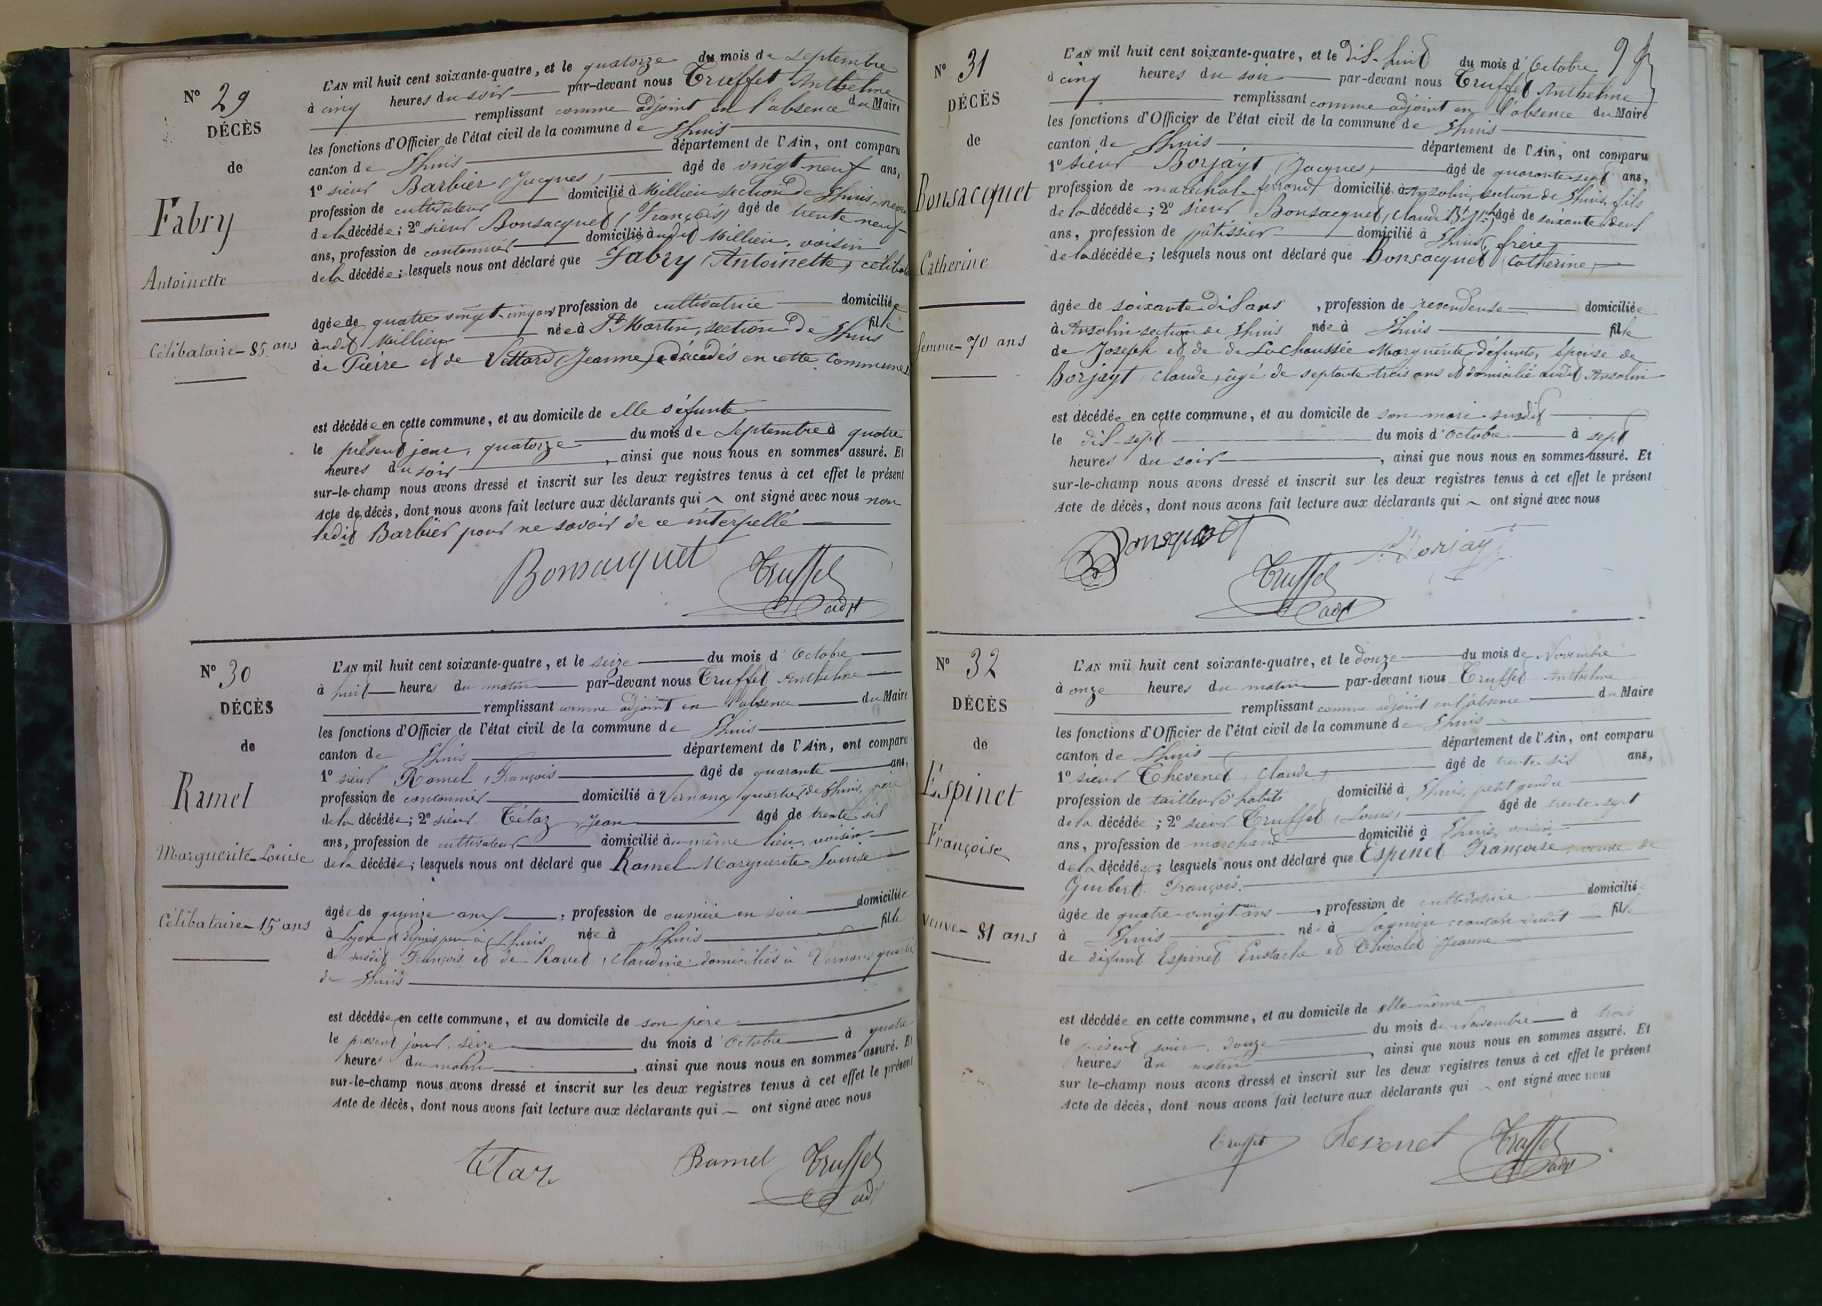 Nº 29
DÉCÈS
de
Fabry
Antoinette
Célibataire - 85 ans
L'AN mil huit cent soixante-quatre, et le quatorze du mois de Septembre
à cinq heures du soir par-devant nous Truffet Anthelme
remplissant comme adjoint en l'absence du Maire
les fonctions d'Officier de l'état civil de la commune de Lhuis
canton de Lhuis département de l'Ain, ont comparu
1º sieur Barbier, Jacques, âgé de vingt neuf ans,
profession de cultivateur domicilié à Millieu section de Lhuis, neveu
de la décédée; 2º sieur Bonsacquet (François) âgé de trente neuf
ans, profession de cantonnier domicilié audit Millieu, voisin
de la décédée; lesquels nous ont déclaré que Fabry (Antoinette)
âgée de quatre vingt-cinq ans profession de cultivatrice domiciliée
audit Millieu née à St Martin, section de Lhuis fille
de Pierre et de Vettard (Jeanne) décédés en cette commune
est décédée en cette commune, et au domicile de elle défunte
le présent jour, quatorze du mois de Septembre à quatre
heures du soir, ainsi que nous nous en sommes assuré. Et
sur-le-champ nous avons dressé et inscrit sur les deux registres tenus à cet effet le présent
Acte de décès, dont nous avons fait lecture aux déclarants qui ont signé avec nous non
ledit Barbier pour ne savoir de ce interpellé
Bonsacquet Truffet adjt
Nº 30
DÉCÈS
de
Ramel
Marguerite-Louise
Célibataire - 15 ans
L'AN mil huit cent soixante-quatre, et le seize du mois d'Octobre
à huit heures du matin par-devant nous Truffet Anthelme
remplissant comme adjoint en l'absence du Maire
les fonctions d'Officier de l'état civil de la commune de Lhuis
canton de Lhuis département de l'Ain, ont comparu
1º sieur Ramel, François âgé de quarante ans,
profession de cantonnier domicilié à Vernans quartier de Lhuis, père
de la décédée; 2º sieur Tétaz Jean âgé de trente six
ans, profession de cultivateur domicilié au même lieu, voisin
de la décédée; lesquels nous ont déclaré que Ramel Marguerite Louise
âgée de quinze ans, profession de ouvrière en soie domiciliée
à Lyon et depuis peu à Lhuis née à Lhuis fille
du susdit François et de Ravet, Claudine domiciliés à Vernans quartier
de Lhuis
est décédée en cette commune, et au domicile de son père
le présent jour, seize du mois d'Octobre à quatre
heures du matin, ainsi que nous nous en sommes assuré. Et
sur-le-champ nous avons dressé et inscrit sur les deux registres tenus à cet effet le présent
Acte de décès, dont nous avons fait lecture aux déclarants qui ont signé avec nous
Tétaz Ramel Truffet adjt
Nº 31
DÉCÈS
de
Bonsacquet
Catherine
femme - 70 ans
L'AN mil huit cent soixante-quatre, et le dix-huit du mois d'Octobre
à cinq heures du soir par-devant nous Truffet Anthelme
remplissant comme adjoint en l'absence du Maire
les fonctions d'Officier de l'état civil de la commune de Lhuis
canton de Lhuis département de l'Ain, ont comparu
1º sieur Borjayt (Jacques) âgé de quarante sept ans,
profession de maréchal-ferrant domicilié à Ansolin section de Lhuis, fils
de la décédée; 2º sieur Bonsacquet, Claude âgé de soixante deux
ans, profession de pâtissier domicilié à Lhuis, frère
de la décédée; lesquels nous ont déclaré que Bonsacquet (Catherine)
âgée de soixante dix ans, profession de revendeuse domiciliée
à Ansolin section de Lhuis née à Lhuis fille
de Joseph et de de Lachaussée Marguerite, défunts, épouse de
Borjayt, Claude, âgé de septante trois ans et domicilié audit Ansolin
est décédée en cette commune, et au domicile de son mari susdit
le dix-sept du mois d'Octobre à sept
heures du soir, ainsi que nous nous en sommes assuré. Et
sur-le-champ nous avons dressé et inscrit sur les deux registres tenus à cet effet le présent
Acte de décès, dont nous avons fait lecture aux déclarants qui ont signé avec nous
Truffet adjt
Nº 32
DÉCÈS
de
Espinet
Françoise
veuve - 81 ans
L'AN mil huit cent soixante-quatre, et le douze du mois de Novembre
à onze heures du matin par-devant nous Truffet Anthelme
remplissant comme adjoint en l'absence du Maire
les fonctions d'Officier de l'état civil de la commune de Lhuis
canton de Lhuis département de l'Ain, ont comparu
1º sieur Thevenet, Claude, âgé de trente six ans,
profession de tailleur d'habits domicilié à Lhuis, petit gendre
de la décédée; 2º sieur Truffet, Louis, âgé de trente sept
ans, profession de marchand domicilié à Lhuis, voisin
de la décédée; lesquels nous ont déclaré que Espinet Françoise, veuve de
Guibert François
âgée de quatre vingt un ans, profession de cultivatrice domiciliée
à Lhuis née à Lagnieu fille
de défunt Espinet Eustache et Chevalet Jeanne
est décédée en cette commune, et au domicile de elle même
le présent jour, douze du mois de Novembre à trois
heures du matin, ainsi que nous nous en sommes assuré. Et
sur le-champ nous avons dressé et inscrit sur les deux registres tenus à cet effet le présent
Acte de décès, dont nous avons fait lecture aux déclarants qui ont signé avec nous
Truffet Tevenet Truffet adjt